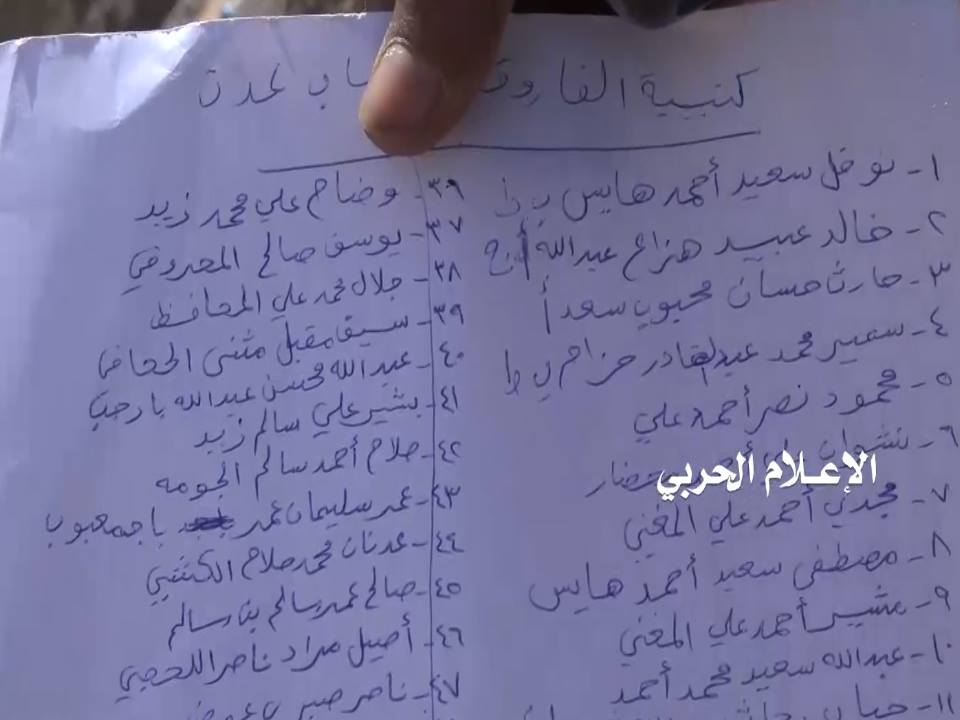 كتيبة الفاروق
١- نوفل سعيد أحمد هايس
٢- خالد عبيد هزاع عبدالله
٣- حارث حسان محبوب سعد
٤- سمير محمد عبدالقادر حزام
٥- محمود نصر أحمد علي
٦- نشوان
٧- مجدي أحمد علي المغني
٨- مصطفى سعيد أحمد هايس
٩- بشير أحمد علي المغني
١٠- عبدالله سعيد محمد أحمد
١١-
٣٦- وضاح علي محمد زيد
٣٧- يوسف صالح
٣٨- جلال محمد علي المحافظ
٣٩- مقبل مثنى
٤٠- عبدالله محسن عبدالله بارجب
٤١- بشير علي سالم زيد
٤٢- صلاح أحمد سالم الجومه
٤٣- عمر سليمان عمر
٤٤- عدنان محمد صلاح
٤٥- صالح عمر سالم بن سالم
٤٦- أصيل مراد ناصر اللحجي
٤٧- ناصر
الإعلام الحربي